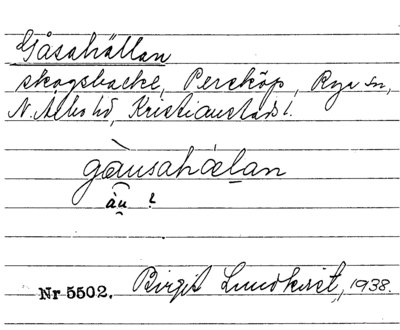 Gåsahällan
skogsbacke, Perstöp, Rya sn,
N. Åsbo hd, Kristianstads l.
gàusahälan
àu ?
Nr 5502. Birgit Lundkvist, 1938.